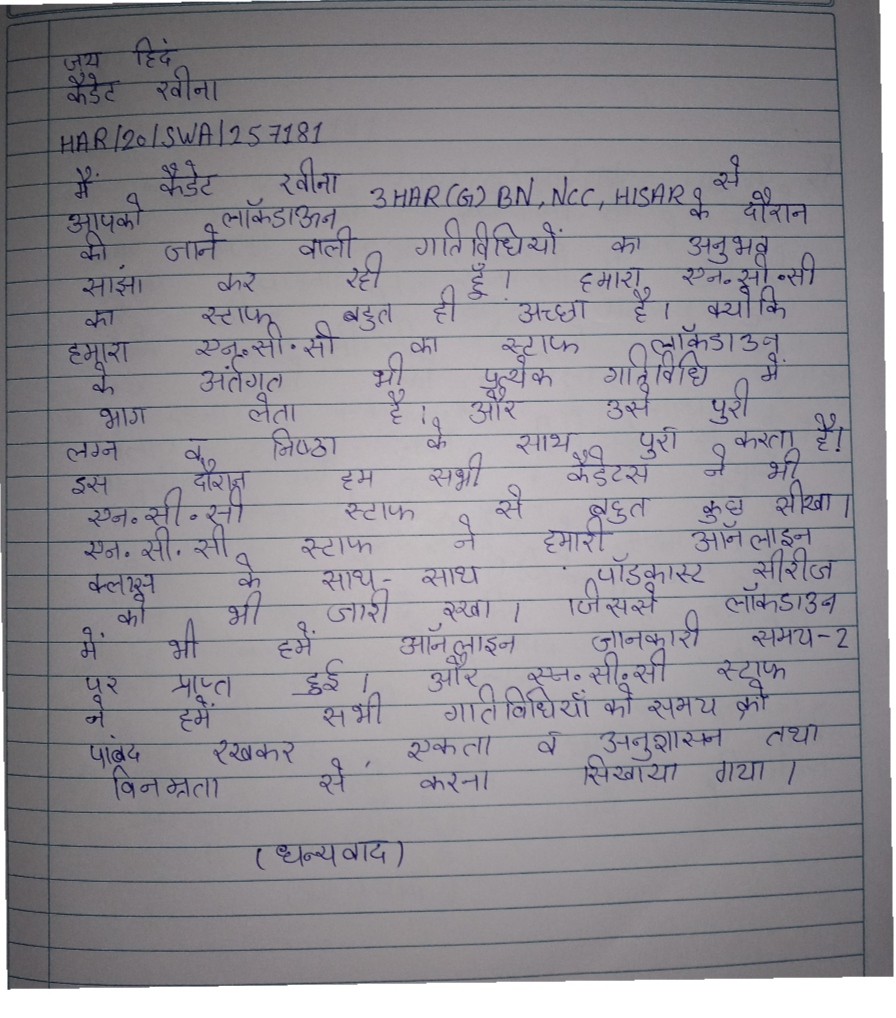 जय हिदं
कैडेट रवीना
HAR/20/SWA/257181
मैं कैडेट रवीना 3HAR(G) BN, NCC, HISAR से
आपको लॉकडाऊन के दौरान
की जाने वाली गतिविधियों का अनुभव
सांझा कर रही हूँ। हमारा एन.सी.सी
का स्टाफ बहुत ही अच्छा है। क्योकि
हमारा एन.सी.सी का स्टाफ लॉकडाउन
के अंर्तगत भी प्रत्येक गतिविधि में
भाग लेता है। और उसे पुरी
लग्न व निष्ठा के साथ पुरा करता है।
इस दौरान हम सभी कैडेटस ने भी
एन.सी.सी स्टाफ से बहुत कुछ सीखा।
एन.सी.सी स्टाफ ने हमारी ऑनलाइन
क्लास के साथ-साथ पॉडकास्ट सीरीज
को भी जारी रखा। जिससे लॉकडाउन
में भी हमें ऑनलाइन जानकारी समय-2
पर प्राप्त हुई। और एन.सी.सी स्टाफ
ने हमें सभी गतिविधियों को समय को
पांबद रखकर, एकता व अनुशासन तथा
विनम्रता से करना सिखाया गया।
(धन्यवाद)